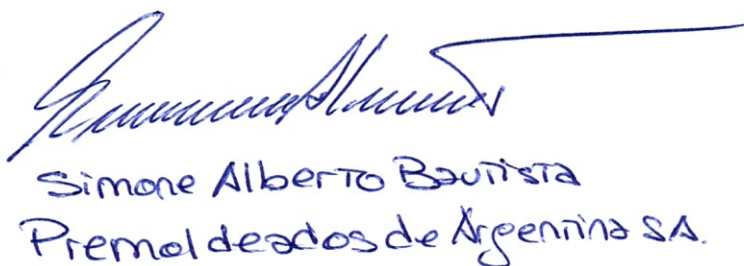 Simone Alberto Bautista
Premoldeados de Argentina S.A.